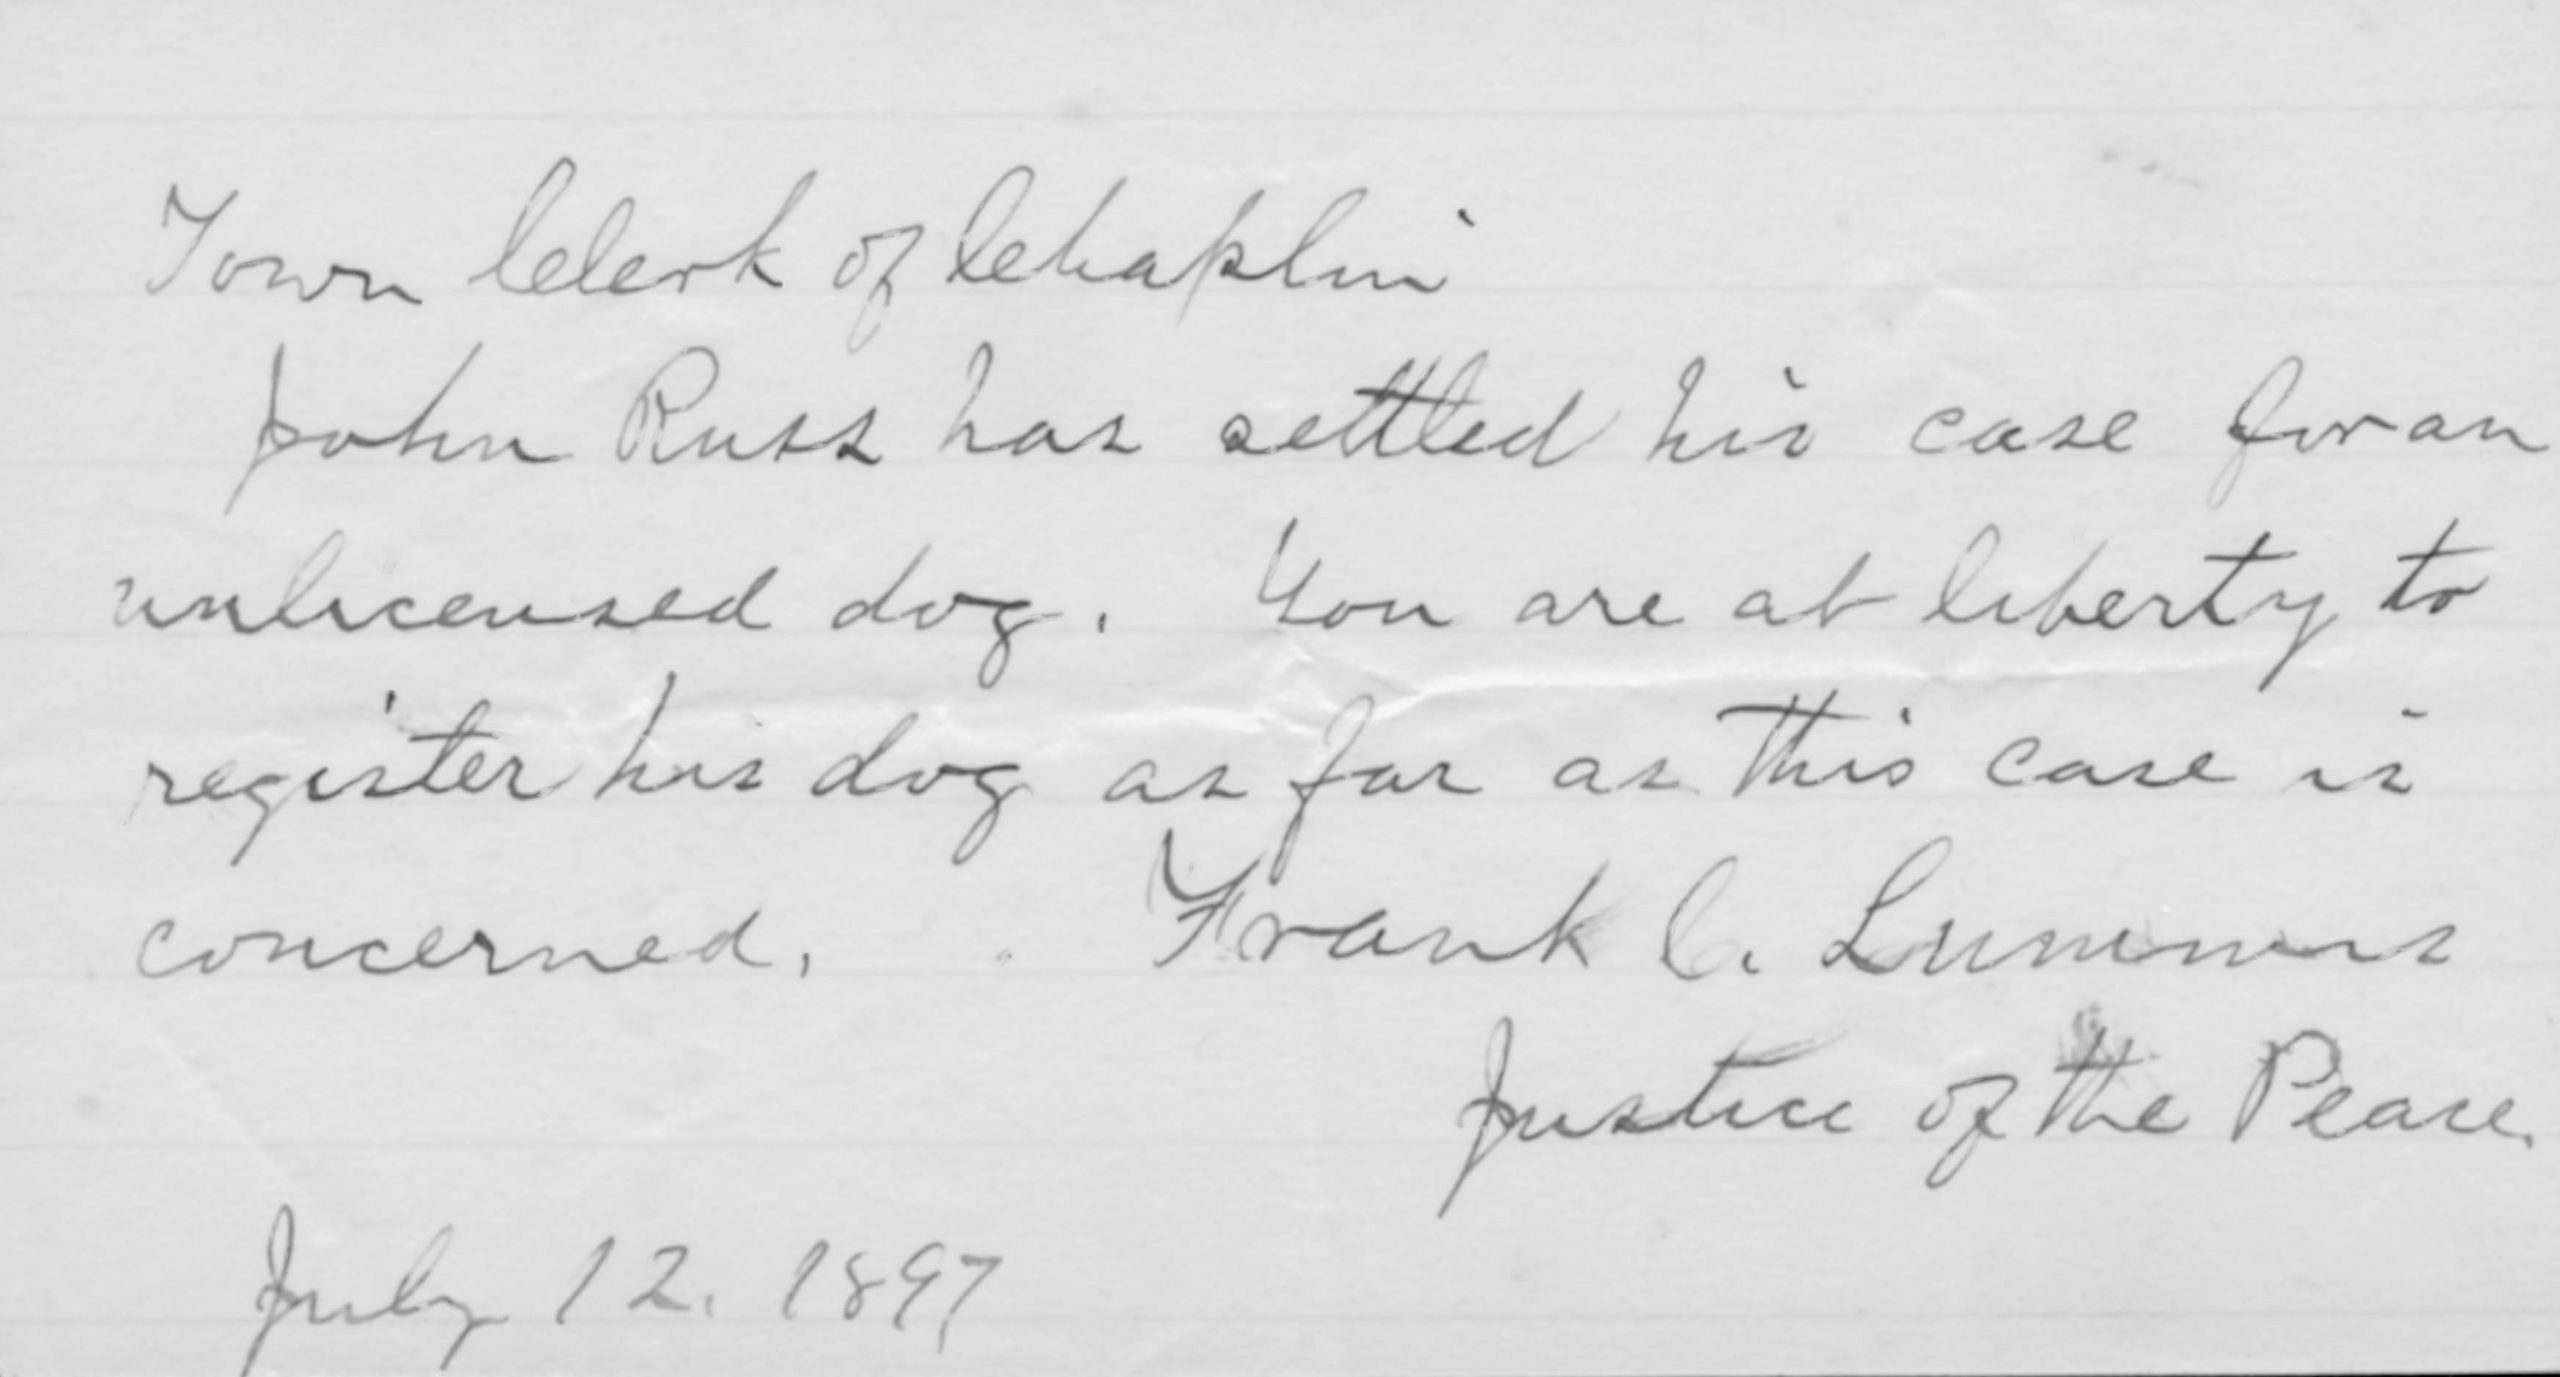 Town Clerk of Chaplin
John Russ has settled his case for an
unlicensed dog. You are at liberty to
register his dog as far as this case is
concerned. Frank C. Lummis
Justice of the Peace.
July 12. 1897